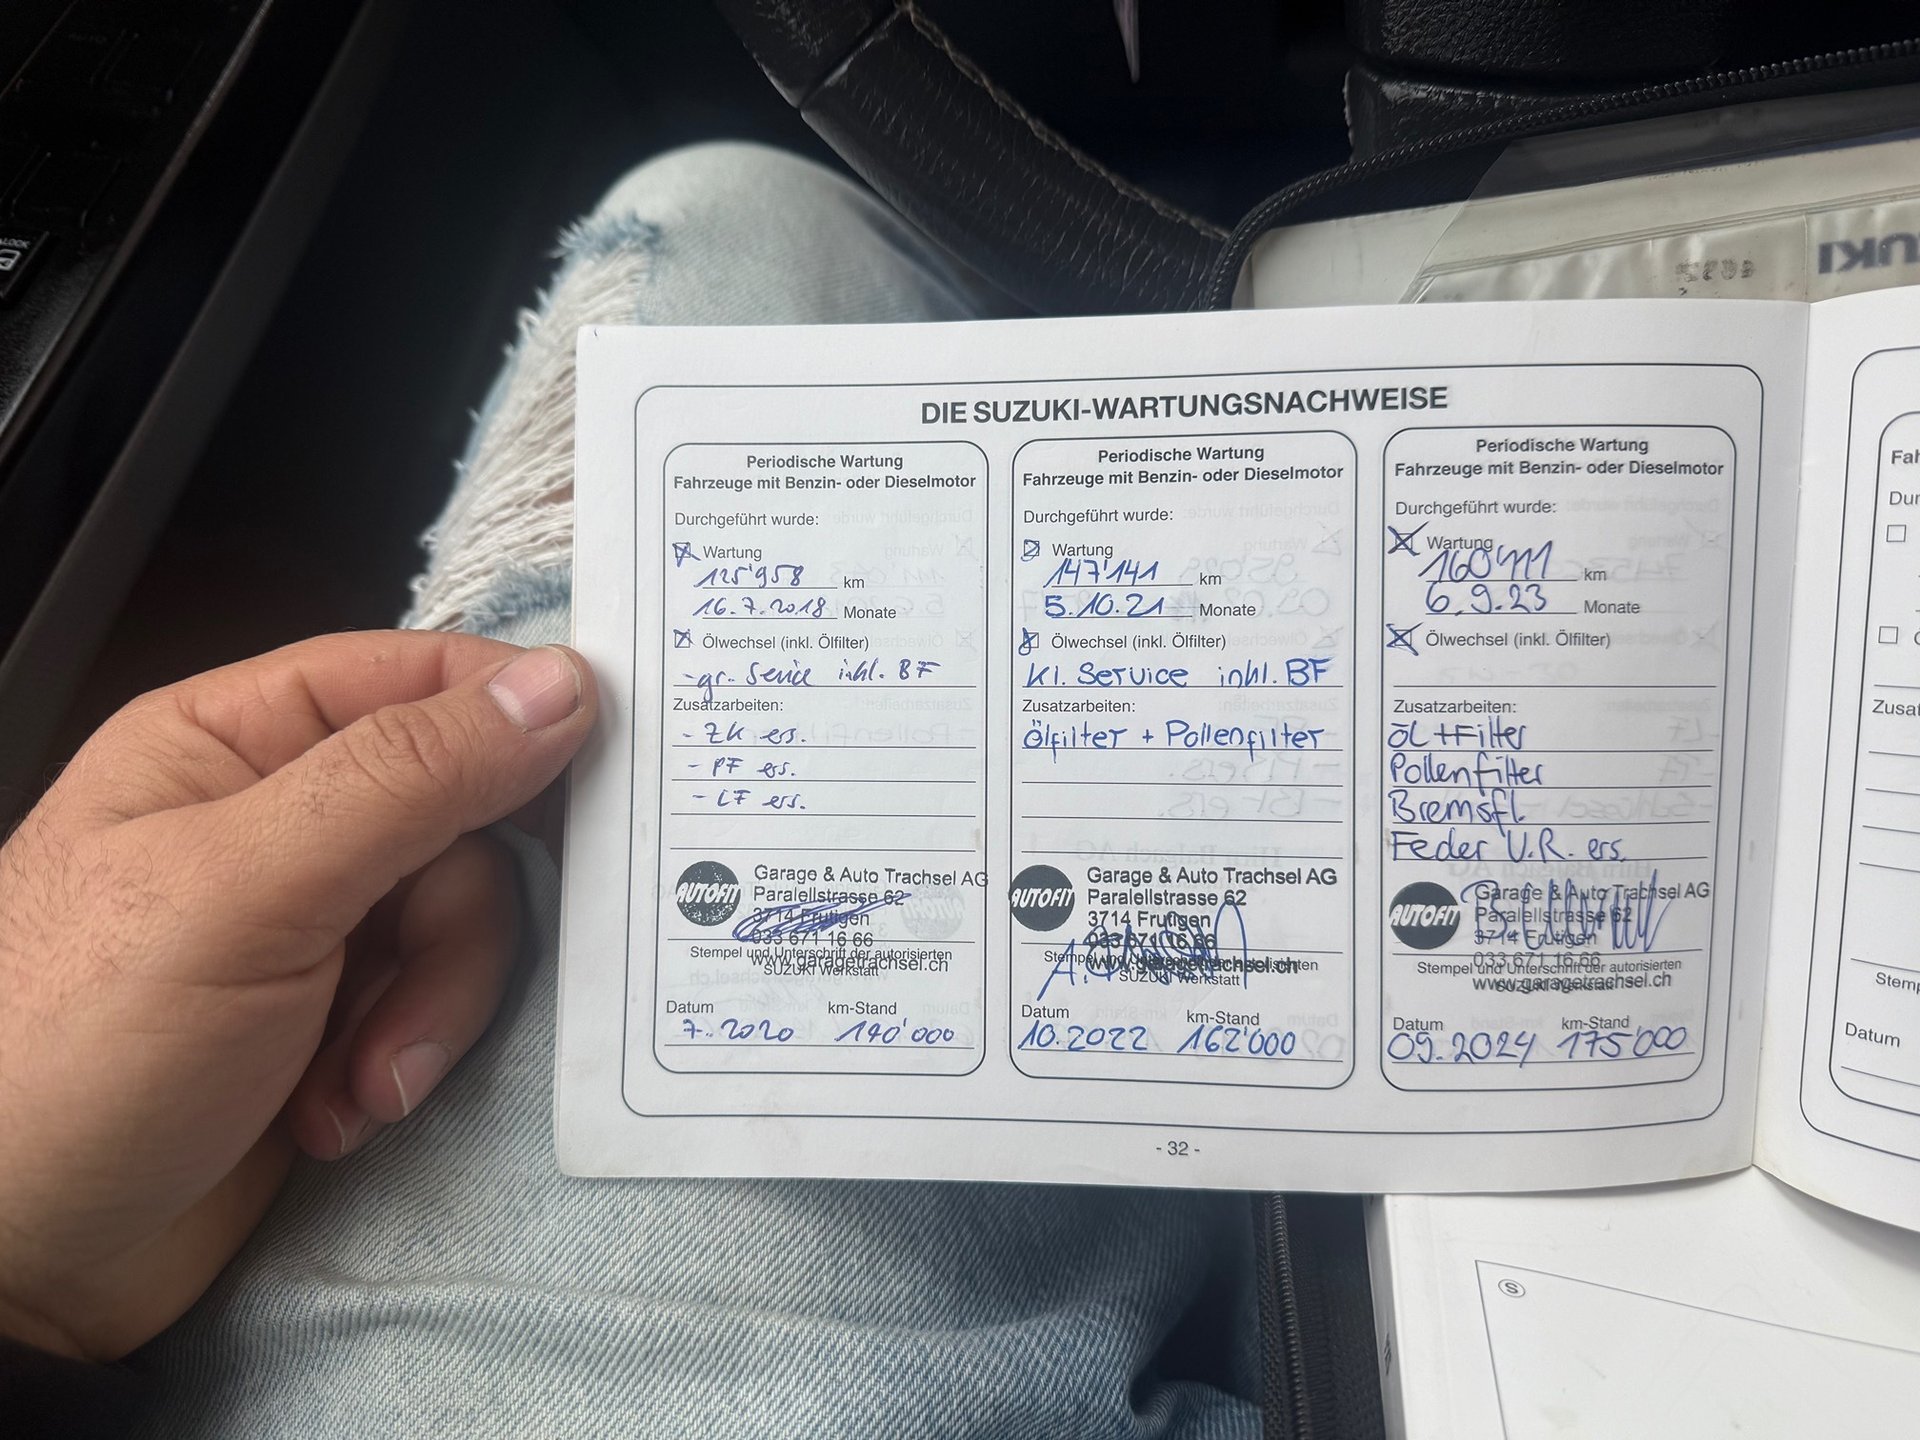 DIE SUZUKI-WARTUNGSNACHWEISE
Periodische Wartung
Fahrzeuge mit Benzin- oder Dieselmotor
Durchgeführt wurde:
Wartung
125'958 km
16.7.2018 Monate
Ölwechsel (inkl. Ölfilter)
- gr. Service inkl. BF
Zusatzarbeiten:
- ZK ers.
- PF ers.
- LF ers.
AUTOFIT
Garage & Auto Trachsel AG
Paralellstrasse 62
3714 Frutigen
033 671 16 66
www.garagetrachsel.ch
Stempel und Unterschrift der autorisierten
SUZUKI Werkstatt
Datum km-Stand
7. 2020 140'000
Periodische Wartung
Fahrzeuge mit Benzin- oder Dieselmotor
Durchgeführt wurde:
Wartung
147'141 km
5.10.21 Monate
Ölwechsel (inkl. Ölfilter)
kl. Service inkl. BF
Zusatzarbeiten:
Ölfilter + Pollenfilter
AUTOFIT
Garage & Auto Trachsel AG
Paralellstrasse 62
3714 Frutigen
033 671 16 66
www.garagetrachsel.ch
Stempel und Unterschrift der autorisierten
SUZUKI Werkstatt
Datum km-Stand
10.2022 162'000
Periodische Wartung
Fahrzeuge mit Benzin- oder Dieselmotor
Durchgeführt wurde:
Wartung
km
6.9.23 Monate
Ölwechsel (inkl. Ölfilter)
Zusatzarbeiten:
ÖL + Filter
Pollenfilter
Bremsfl.
Feder V.R. ers.
AUTOFIT
Garage & Auto Trachsel AG
Paralellstrasse 62
3714 Frutigen
033 671 16 66
www.garagetrachsel.ch
Stempel und Unterschrift der autorisierten
SUZUKI Werkstatt
Datum km-Stand
09.2024 175'000
- 32 -
Datum
S